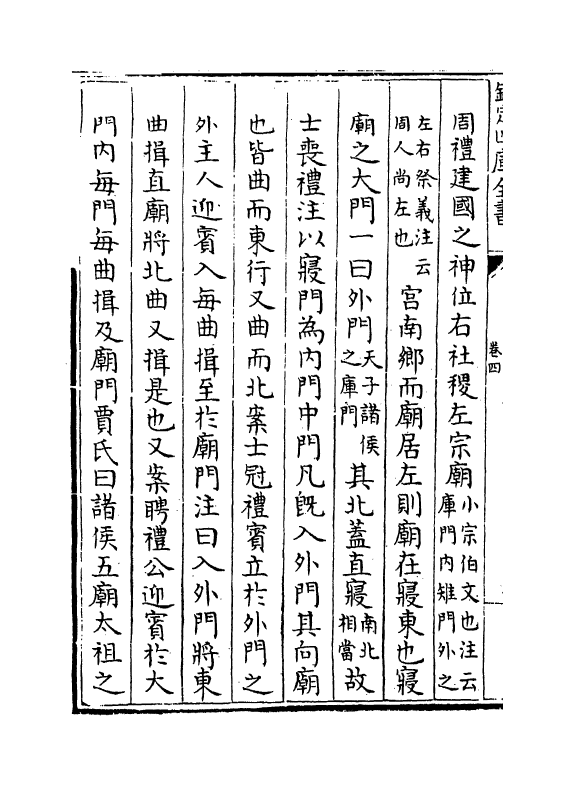 欽定四庫全書
卷四
周禮建國之神位右社稷左宗廟小宗伯文也注云庫門内雉門外之
左右祭義注云周人尚左也宮南鄉而廟居左則廟在寢東也寢
廟之大門一曰外門天子諸侯之庫門其北蓋直寢南北相當故
士喪禮注以寢門為内門中門凡旣入外門其向廟
也皆曲而東行又曲而北案士冠禮賓立於外門之
外主人迎賓入每曲揖至於廟門注曰入外門將東
曲揖直廟將北曲又揖是也又案聘禮公迎賓於大
門内每門每曲揖及廟門賈氏曰諸侯五廟太祖之